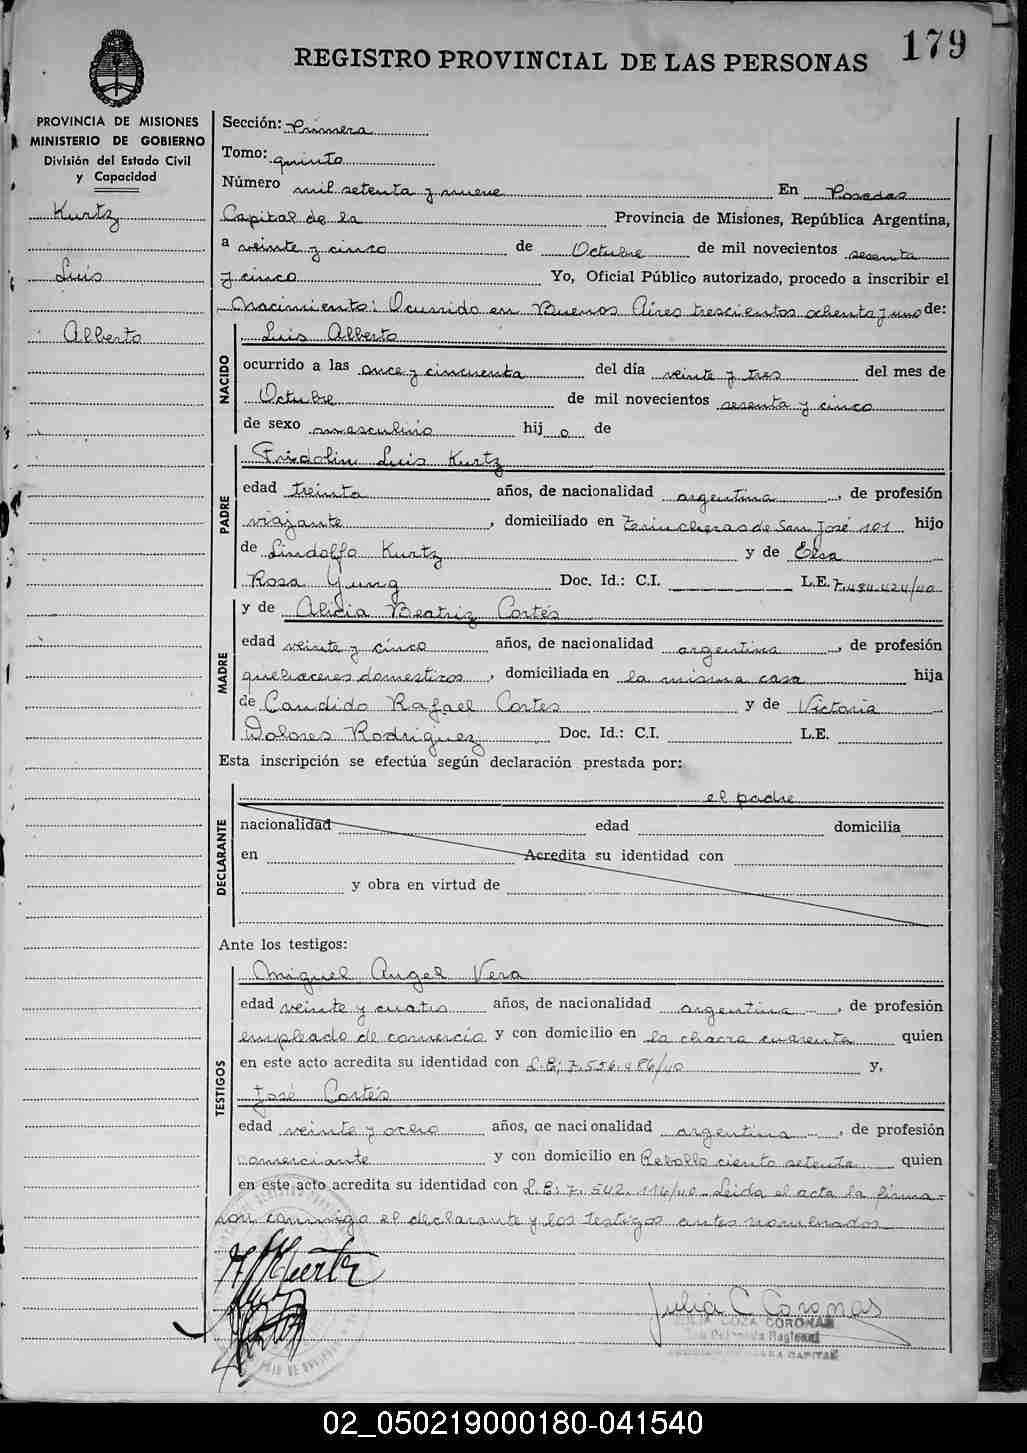 179
REGISTRO PROVINCIAL DE LAS PERSONAS
PROVINCIA DE MISIONES
MINISTERIO DE GOBIERNO
División del Estado Civil
y Capacidad
Kurtz
Luis
Alberto
Sección: Primera
Tomo: quinto
Número mil setenta y nueve En Posadas
Capital de la Provincia de Misiones, República Argentina,
a veinte y cinco de Octubre de mil novecientos sesenta
y cinco Yo, Oficial Público autorizado, procedo a inscribir el
Nacimiento: Ocurrido en Buenos Aires trescientos ochenta y uno de:
NACIDO
Luis Alberto
ocurrido a las once y cincuenta del día veinte y tres del mes de
Octubre de mil novecientos sesenta y cinco
de sexo masculino hij o de
PADRE
Fridolin Luis Kurtz
edad treinta años, de nacionalidad argentina, de profesión
viajante, domiciliado en Trincheras de San José 101 hijo
de Lindolfo Kurtz y de Elsa
Rosa Yung Doc. Id.: C.I. L.E. 7.484.424/40
y de Alicia Beatriz Cortés
MADRE
edad veinte y cinco años, de nacionalidad argentina, de profesión
quehaceres domesticos, domiciliada en la misma casa hija
de Candido Rafael Cortes y de Victoria
Dolores Rodriguez Doc. Id.: C.I. L.E.
Esta inscripción se efectúa según declaración prestada por:
DECLARANTE
el padre
nacionalidad edad domicilia
en Acredita su identidad con
y obra en virtud de
Ante los testigos:
TESTIGOS
Miguel Angel Vera
edad veinte y cuatro años, de nacionalidad argentina, de profesión
empleado de comercio y con domicilio en la chacra cuarenta quien
en este acto acredita su identidad con L.E; 7.556.986/40 y,
José Cortés
edad veinte y ocho años, de nacionalidad argentina, de profesión
comerciante y con domicilio en Rebollo ciento setenta quien
en este acto acredita su identidad con L.E; 7.542.114/40 - Leida el acta la firma-
ron conmigo el declarante y los testigos antes nombrados
Kurtz
Julia C Coronas
JULIA COZA CORONAS
02_050219000180-041540